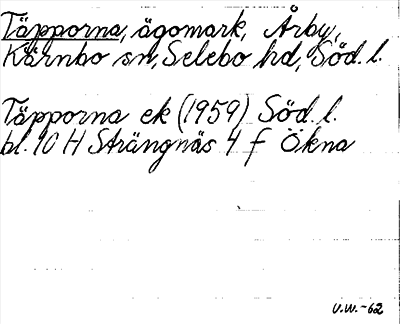 Täpporna, ägomark, Årby,
Kärnbo sn, Selebo hd, Söd. l.
Täpporna ek (1959) Söd. l.
bl. 10 H Strängnäs 4 f Ökna
U.W.-62